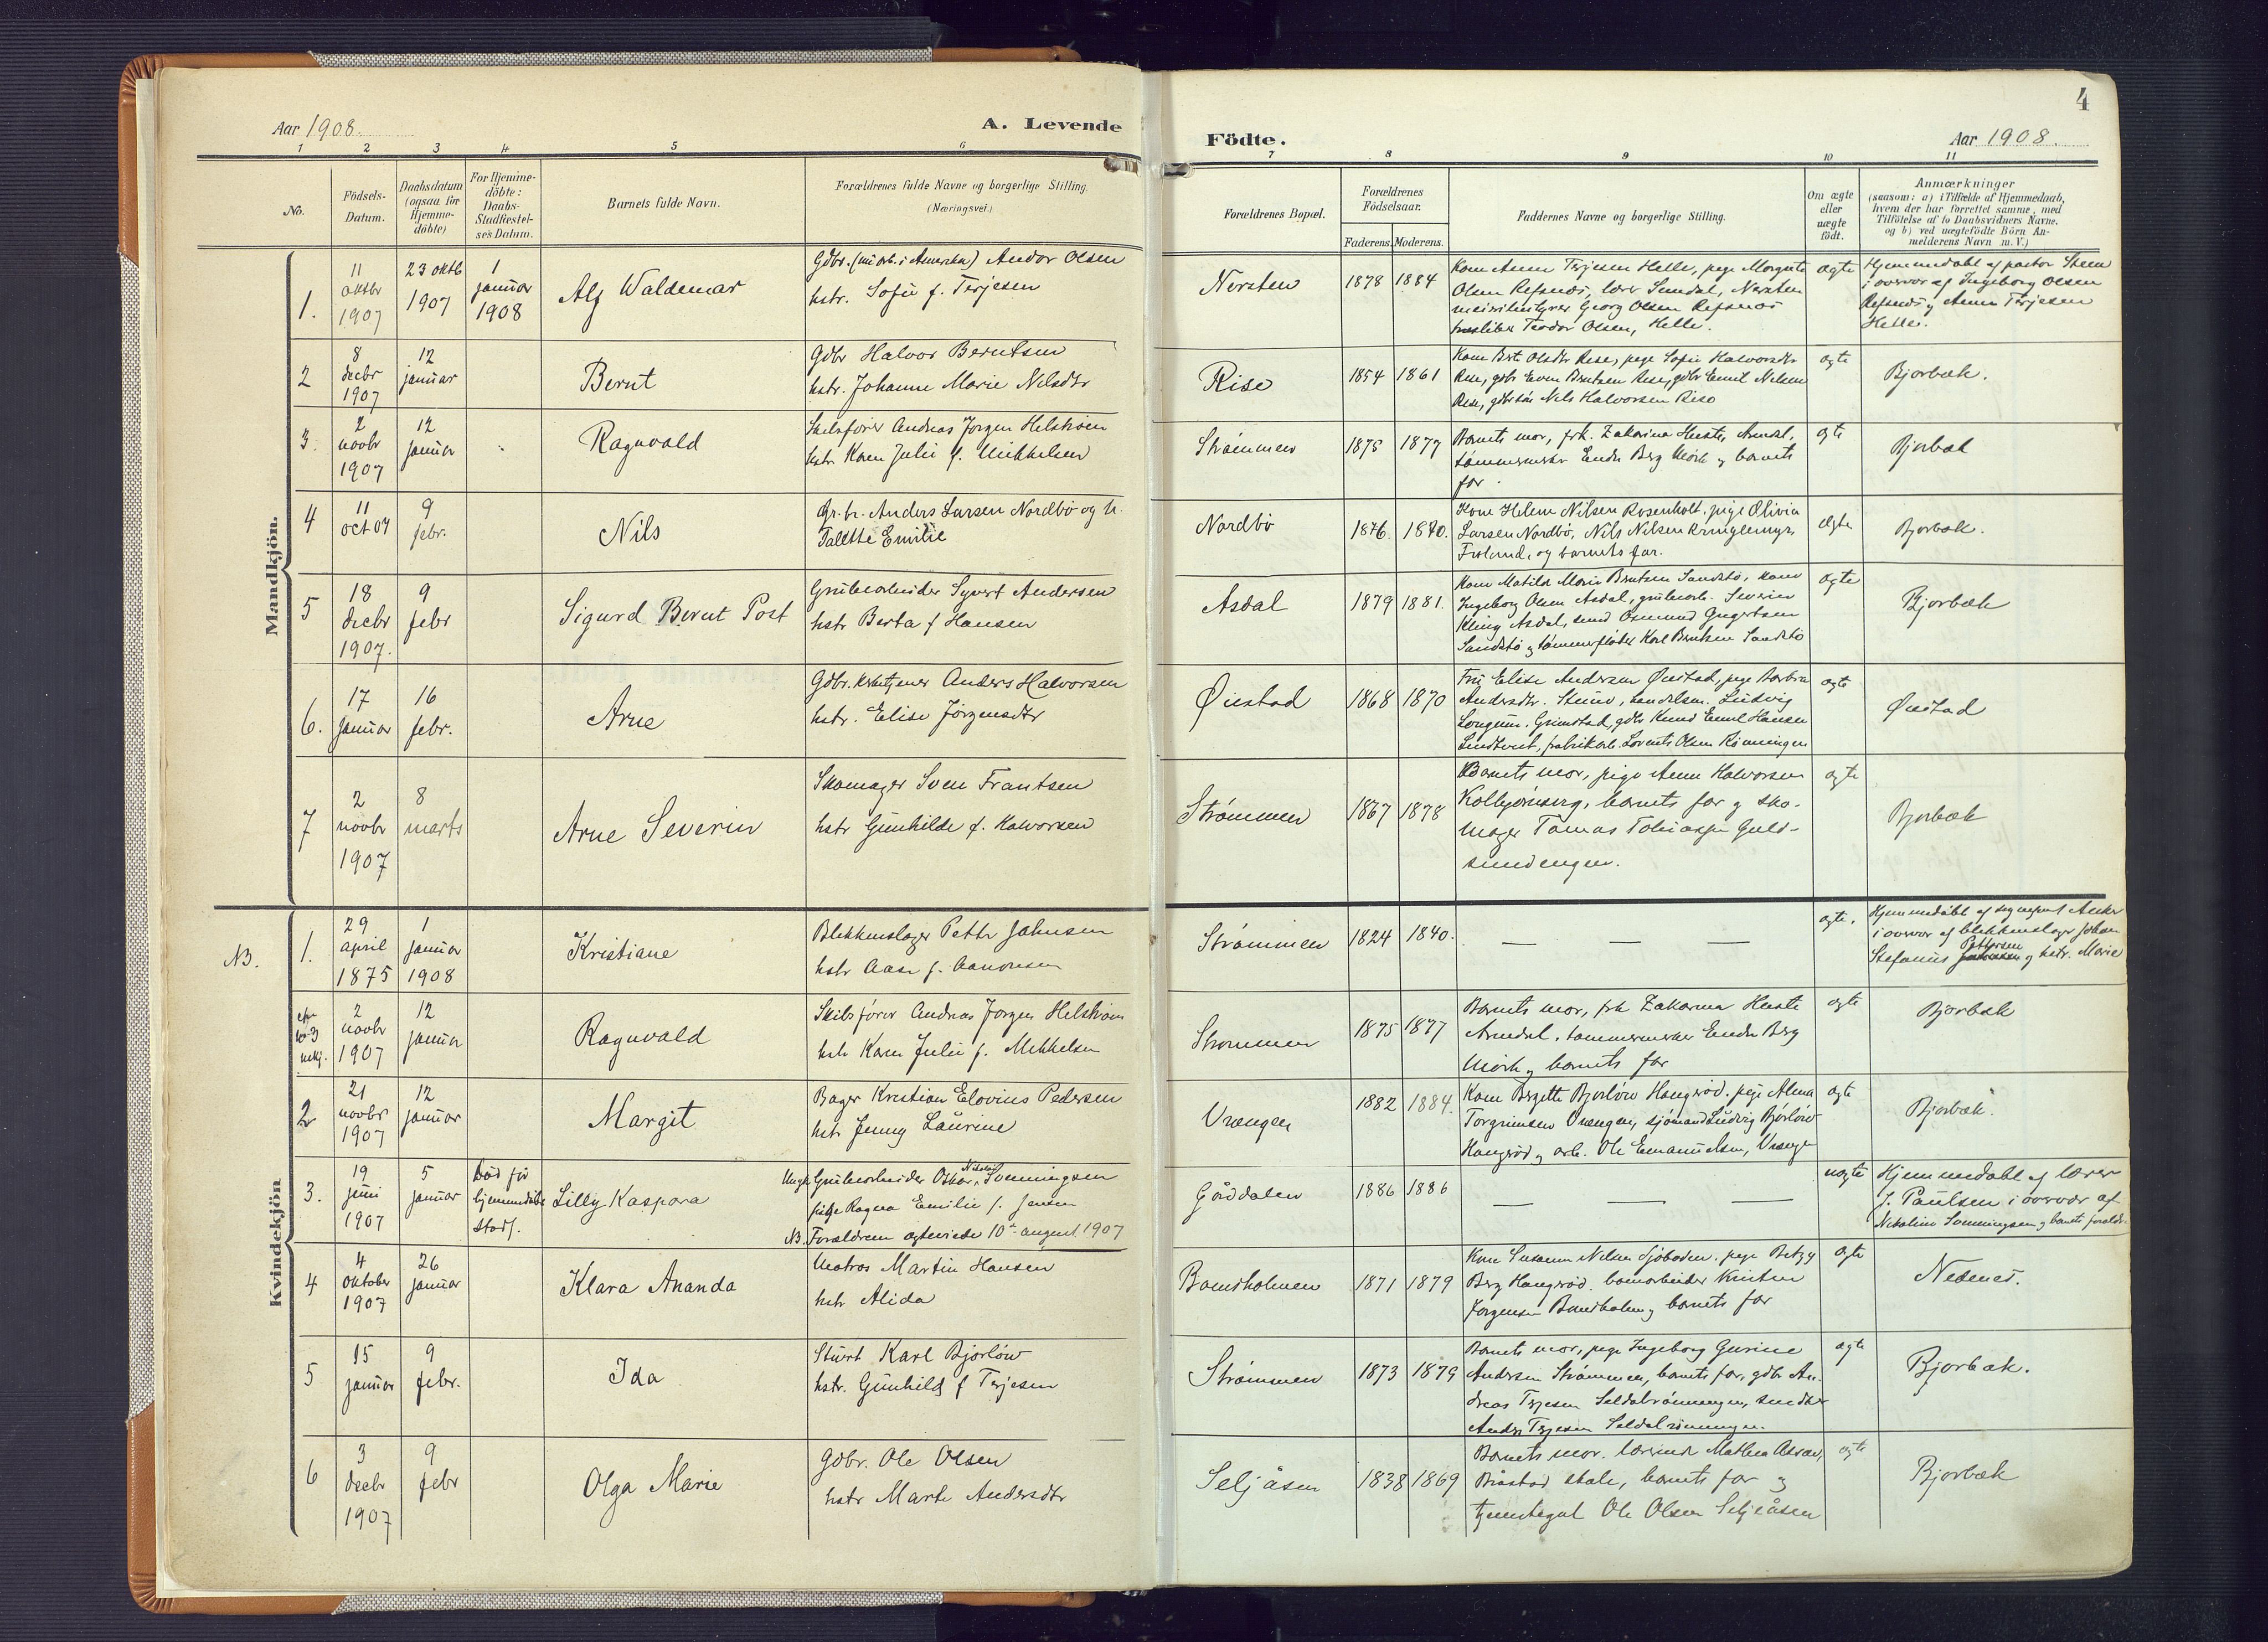 4
Aar 1908.
A. Levende
Födte.
Aar 1908.
1 2 3 4 5 6 7 8 9 10 11
No.
Födsels-
Datum.
Daabsdatum
(ogsaa for
Hjemme-
döbte)
For Hjemme-
döbte:
Daabs-
Stadfæstel-
ses Datum.
Barnets fulde Navn.
Forældrenes fulde Navne og borgerlige Stilling.
(Næringsvei.)
Forældrenes Bopæl.
Forældrenes
Födselsaar.
Faderens. Moderens.
Faddernes Navne og borgerlige Stilling.
Om ægte
eller
uægte
födt.
Anmærkninger
(saasom: a) i Tilfælde af Hjemmedaab,
hvem der har forrettet samme, med
Tilföielse af to Daabsvidners Navne.
og b) ved uægtefödte Börn An-
melderens Navn m. V.)
Mandkjön.
1.
11
oktbr
1907
23 oktb
1907
1
januar
1908
Alf Waldemar
Gdbr. (nu arb. i Amerika) Andor Olsen
hstr. Sofie f. Terjesen
Nersten
1878 1884
Kone Anna Terjesen Helle, pige Margrete
Olsen Refsnæs, lærer Sundal, Nersten
Georg Olsen Refsnæs
Teodor Olsen, Helle.
ægte
Hjemmedøbt af pastor Steen
i overvær af Ingeborg Olsen
Refsnæs og Anna Terjesen
Helle.
2
8
decbr
1907
12
januar
Bernt
Gdbr Halvor Berntsen
hstr. Johanne Marie Nilsdtr
Rise
1854 1861
Kone Brt Olsdtr Rise, pige Sofie Halvorsdtr
Rise, gdbr Even Berntsen Rise, gdbr Emil Nilsen
Rise, gdbrsøn Nils Halvorsen Rise
ægte
Bjorbæk.
3.
2
novbr
1907
12
januar
Ragnvald
Skibsfører Andreas Jørgen Helstrøm
hstr. Karen Julie f. Mikkelsen
Strømmen
1875 1877
Barnets mor, frk. Zakarina Heste, Arendal,
tømmermskr Endre Berg Mørk og barnets
far.
ægte
Bjorbæk
4
11
oct 07
9
febr.
Nils
Gr.br. Anders Larsen Nordbø og h.
Talette Emilie
Nordbö
1876. 1870.
Kone Helene Nilsen Rosenholt, pige Olivia
Larsen Nordbø, Nils Nilsen Kringlemyr,
Frolund, og barnets far.
ægte
Bjorbæk.
5
18
decbr
1907.
9
febr
Sigurd Bernt Post
Grubearbeider Syvert Andersen
hstr Berta f Hansen
Asdal
1879 1881.
Kone Matilde Marie Berntsen Sandstø, kone
Ingeborg Olsen Asdal, grubearb. Severin
Kling Asdal, Osmund Gngertsen
Sandstø og tømmerfløder Karl Berntsen Sandstø
ægte
Bjorbæk
6.
17
januar
16
febr.
Arne
Gdbr. kirketjener Anders Halvorsen
hstr. Elise Jörgensdtr
Øiestad
1868 1870
Fru Elise Andersen Øiestad, pige Barbra
Andersdtr. Stuno, handelsm. Ludvig
Longum, Grimstad, gdbr Knud Emil Hansen
Lindtveit, fabrikarb. Lorents Olsen Rønningen
ægte
Øiestad
7
2
novbr
1907
8
marts
Arne Severin
Skomager Sven Frantsen
hstr Gunhilde f. Halvorsen
Strømmen
1867 1878
Barnets mor, pige Anna Halvorsen
Kolbjørnsvig, barnets far og sko-
mager Tomas Tobiassen Guld-
smedengen.
ægte
Bjorbæk
Kvindekjön
NB.
1.
29
april
1875
1
januar
1908
Kristiane
Blikkenslager Petter Johnsen
hstr Aase f. Aanonsen
Strømmen
1824 1840.
— — —
ægte.
Hjemmedøbt af Anker
i overvær af blikkenslager Johan
Pettersen
Stefanus og hstr. Marie
No 3
2
novbr
1907
12
januar
Ragnvald
Skibsfører Andreas Jørgen Helstrøm
hstr Karen Julie f. Mikkelsen
Strømmen
1875 1877
Barnets mor, frk Zakarina Heste
Arendal, tømmermskr Endre Berg
Mørk og barnets far
ægte
Bjorbæk
2
21
novbr
1907
12
januar
Margit
Bager Kristian Elovius Pedersen
hstr Jenny Laurine
Vrængen
1882 1884.
Kone Birgitte Bjorløw Hangrød, pige Alma
Torgrimsen Vrængen, sjømand Ludvig Bjorløw
Hangrød og arb. Ole Emanuelsen, Vrænge
ægte
Bjorbæk.
3.
19
juni
1907
5
januar
Død før
hjemmedøbt
stadf.
Lilly Kaspara
Nikolai
Ungk Grubearbeider Oskar Sonningsen
pige Ragna Emilie f. Jensen
NB. Forældrene ægteviede 10de august 1907
Gåddalen
1886 1886
— — —
uægte
Hjemmedøbt af lærer
J. Paulsen i overvær af
Nikoline Sonningsen og barnets forældre
4
4
oktober
1907
26
januar
Klara Ananda
Matros Martin Hansen
hstr Alida
Bomsholmen
1871 1879
Kone Susanne Nilsen Sjøboden, pige Betzy
Berg Hangrød, Kristen
Jorgensen Bomsholmen og barnets far
ægte
Nedenes.
5
15
januar
9
febr.
Ida
Stuert Karl Bjorlöw
hstr. Gunhild f Terjesen
Strømmen
1873 1879
Barnets mor, pige Ingeborg Gurine
Andersen Strømmen, barnets far, gdbr An-
dreas Terjesen Seldalrønningen,
Anders Terjesen Seldalrønningen.
ægte
Bjorbæk.
6
3
decbr
1907
9
febr
Olga Marie
Gdbr. Ole Olsen
hstr Marte Andersdtr
Seljåsen
1838 1869
Barnets mor, lærerinde Mathea
Bråstad skole, barnets far og
tjenestegut Ole Olsen Seljeåsen
ægte
Bjorbæk